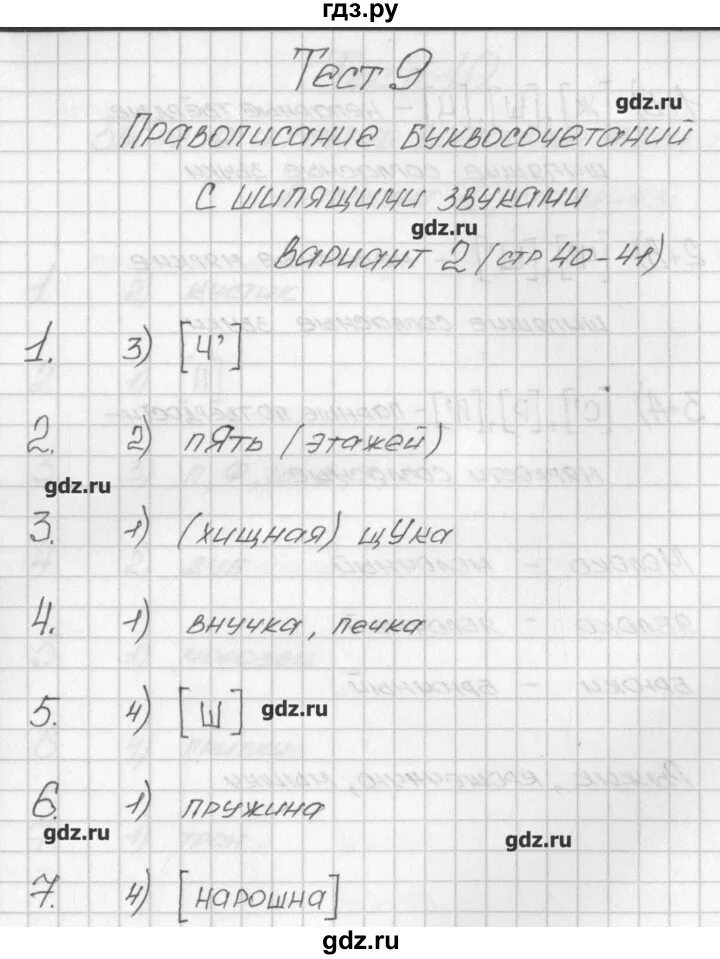 гдз.ру
Тест 9
gdz.ru
Правописание буквосочетаний
с шипящими звуками
gdz.ru
Вариант 2 (стр 40-41)
1. 3) [ч’]
2. 2) пЯть (этажей)
gdz.ru
3. 1) (хищная) щУка
4. 1) внучка, печка
5. 4) [ш] gdz.ru
6. 1) пружина
gdz.ru
gdz.ru
7. 4) [нарошна]
gdz.ru